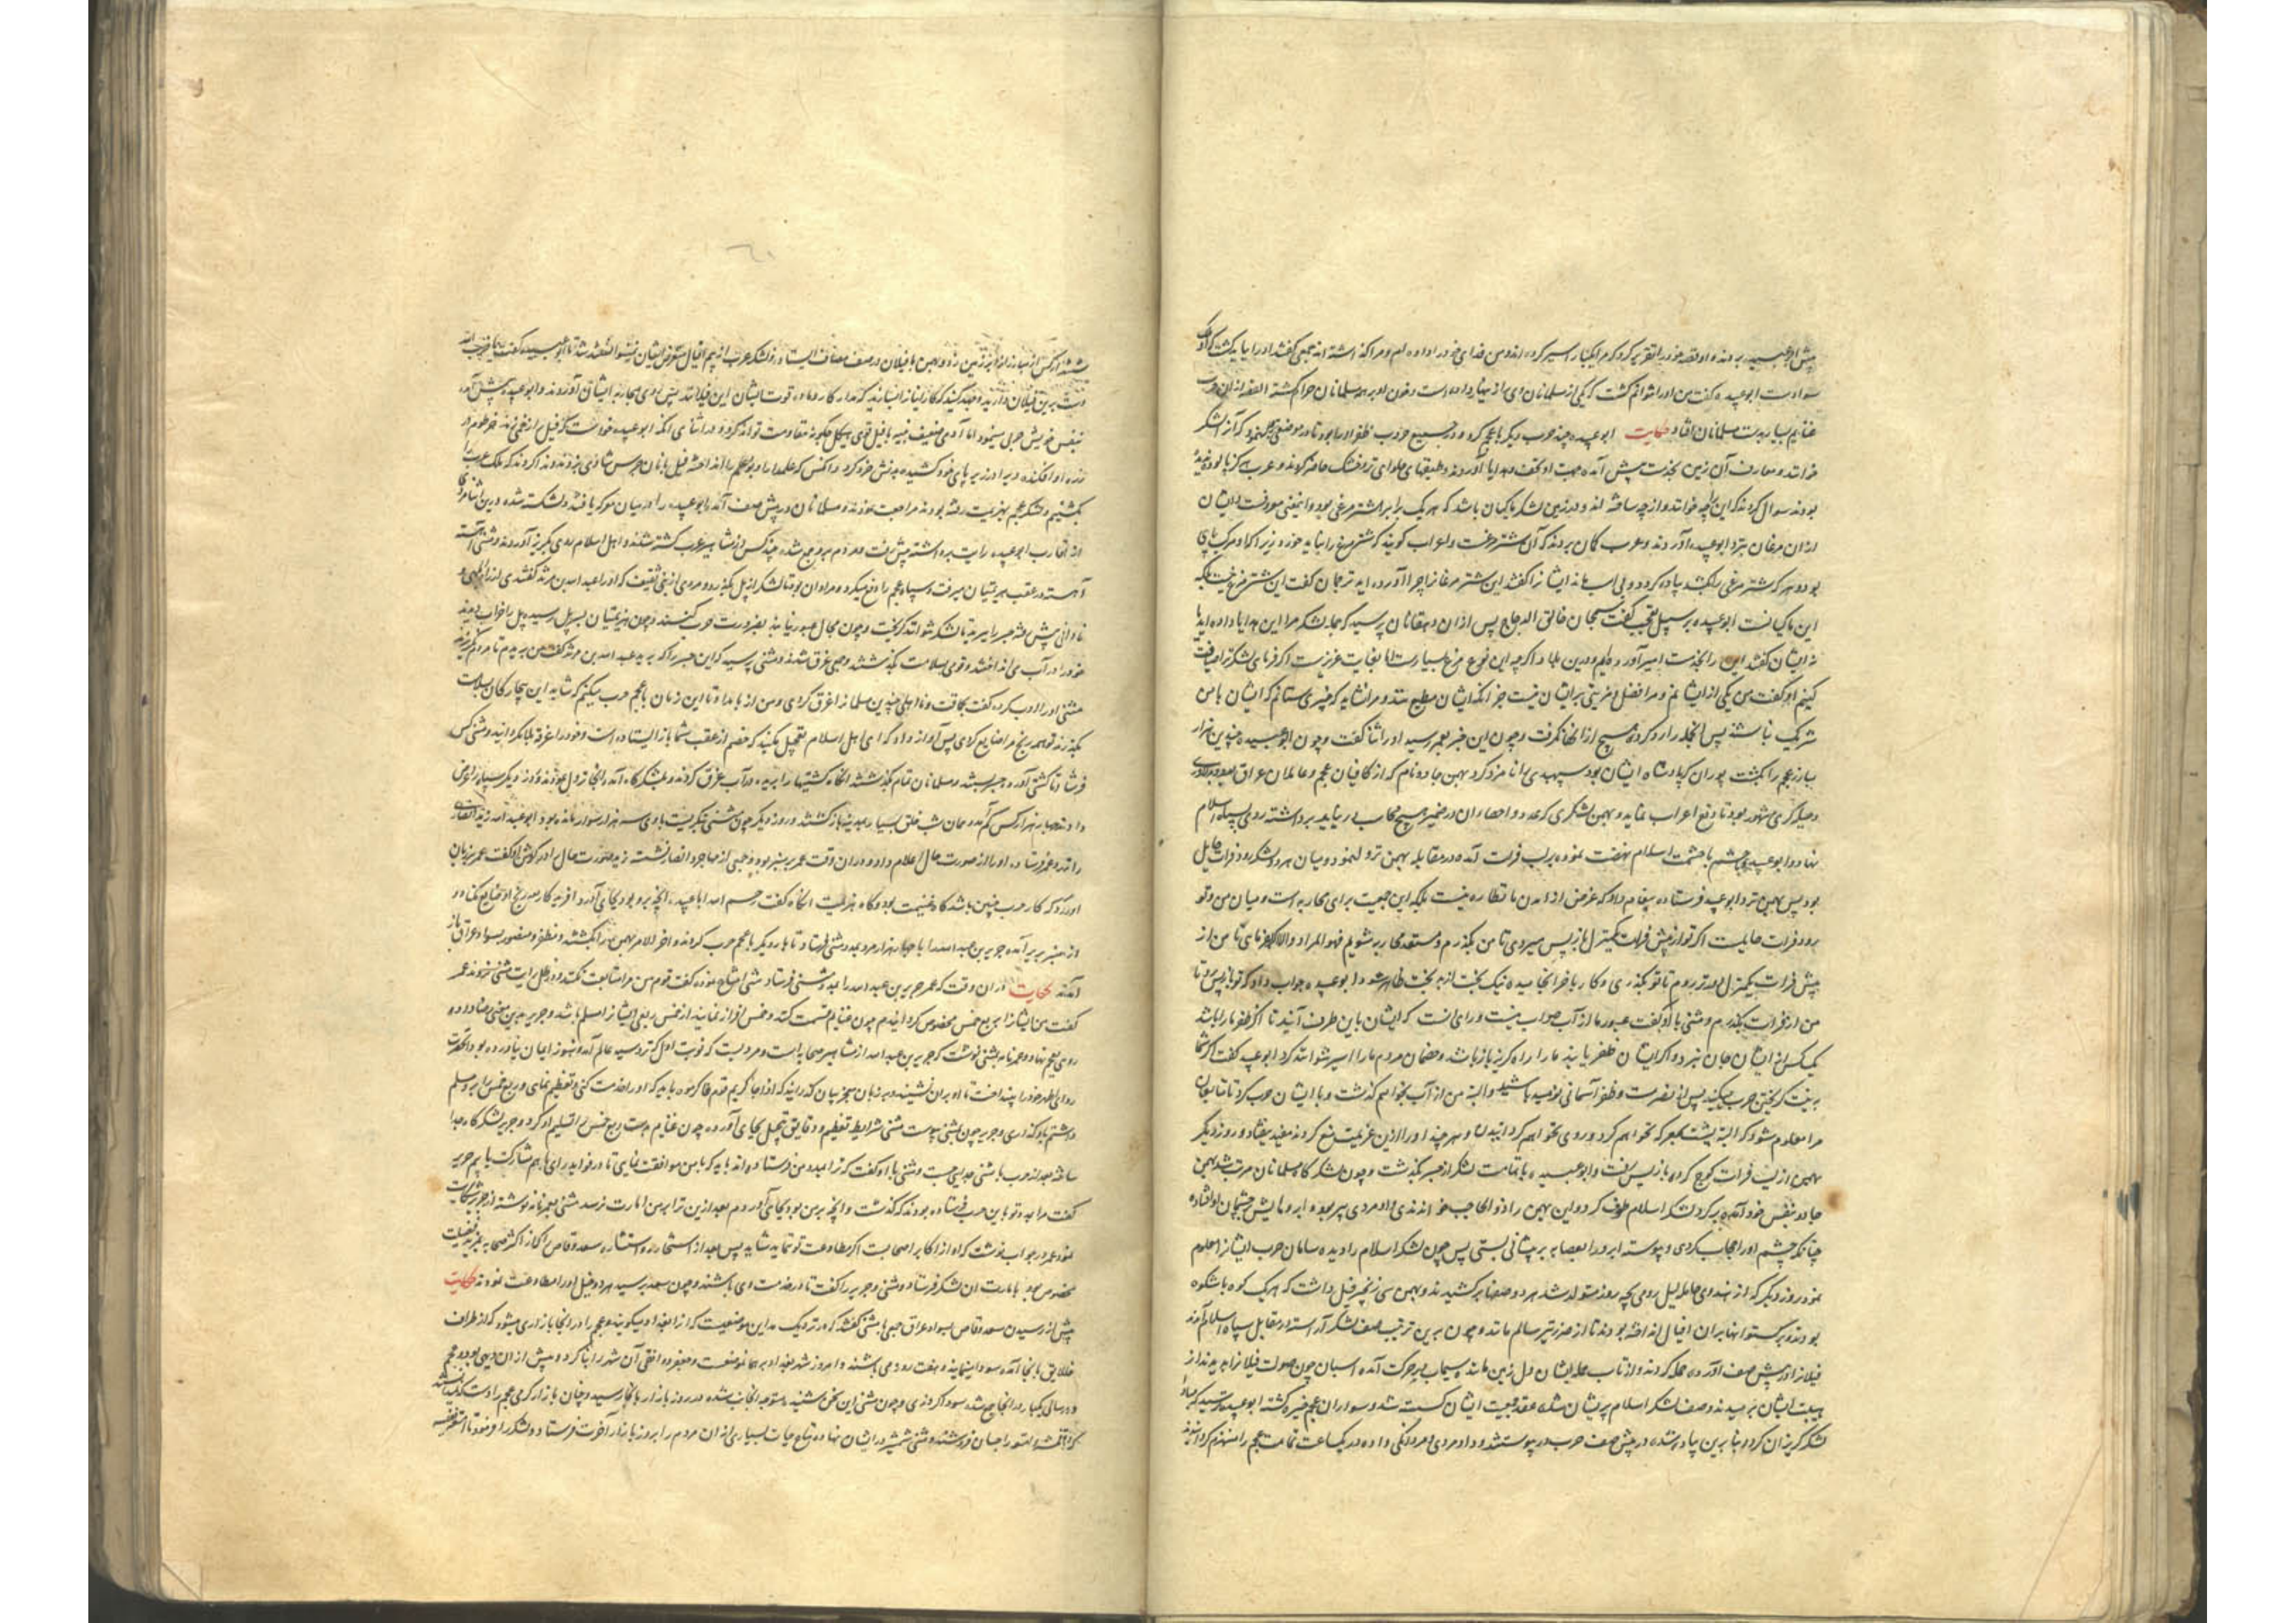 پیش ابوعبیده بردند و او قصه خود را تقریر کرد که مرا یکبار اسیر کرده اند و من فدای خود را داده ام و مرا گذاشته اند جمعی گفتند او را بباید کشت که او
سواد است ابوعبیده گفت من او را نتوانم کشت که یکی از مسلمانان وی را زینهار داده است و خون او بر همه مسلمانان حرام گشته القصه از آن حرب
غنایم بسیار بدست مسلمانان افتاد حکایت ابوعبیده چند حرب دیگر با عجم کرد و در جمیع حروب ظفر او را بود تا در موضعی که آن را لشکر
خوانند و معارف آن زمین بخدمت پیش آمده جهت او تحف و هدایا آوردند و طبقهای حلوای تر و خشک حاضر کردند و عرب که هرگز نا
بودند سوال کردند که این را چه خوانند و از چه ساخته اند و در زمین لشکر ماکیان باشد که هر یک را برابر شتر مرغی بود و
از آن مرغان نزد ابوعبیده آوردند و عرب گمان بردند که آن شتر مرغست و اعراب گویند که شتر مرغ را نباید خورد زیرا که او مرکب
بود و هر که شتر مرغی را بکشد پیاده گردد و بی اسب ماند ایشان را گفتند این شتر مرغان را چرا آورده اید ترجمان گفت این شتر مرغ نیست بلکه
این ماکیانست ابوعبیده بر سبیل تعجب گفت سبحان خالق الدجاج پس از آن دهقانان پرسید که همه لشکر مرا این هدایا داده اید یا
نه ایشان گفتند این را بخدمت امیر آورده ایم و درین بلاد اگرچه این نوع مرغ بسیارست اما بغایت عزیزست اگر فرمای لشکر ترا ضیافت
کنیم او گفت من یکی از ایشانم و مرا فضل و مزیتی بر ایشان نیست جز آنکه ایشان مطیع منند و مرا نشاید که چیزی ستانم که ایشان با من
شریک نباشند پس آنجمله را رد کرد و هیچ از آنها نگرفت و چون این خبر بعمر رسید او را ثنا گفت و چون ابوعبیده چندین هزار
مبارز عجم را بکشت پوران که پادشاه ایشان بود سپهبدی را نامزد کرد بهمن جادو نام که از کافیان عجم و عاملان عراق بود
و حیله گری مشهور بود تا دفع اعراب نماید و بهمن لشکری که عدد و احصاء آن در ضمیر هیچ محاسب در نیاید برداشته روی بسپاه اسلام
نهاد و ابوعبیده با حشمت اسلام نهضت نموده بر لب فرات آمده در مقابله بهمن نزول نمود و میان هر دو لشکر رود فرات حایل
بود پس بهمن نزد ابوعبیده فرستاده پیغام داد که غرض از آمدن ما نظاره نیست بلکه این جمعیت برای محاربه است و میان من و تو
رود فرات حایلست اگر تو از پیش فرات یکمنزل باز پس میروی تا من بگذرم و مستعد محاربه شویم فهو المراد والا نمای تا من از
پیش فرات یکمنزل دورتر روم تا تو بگذری و کار باخر انجامیده نیک بخت از بد بخت ظاهر شود ابوعبیده جواب داد که تو باز پس رو تا
من از فرات بگذرم و مثنی با او گفت عبور ما از آب صواب نیست و رای آنست که ایشان باین طرف آیند تا اگر ظفر ما را باشد
یک کس از ایشان جان نبرد و اگر ایشان ظفر یابند ما را راه گریز باز باشد و خصمان مردم ما را اسیر نتوانند کرد ابوعبیده گفت اگر شما
به نیت گریختن حرب میکنید پس از نصرت و ظفر آسمانی نومید باشید و البته من از آب بخواهم گذشت و با ایشان حرب کرد تا
مرا معلوم شود که البته پشت بمعرکه نخواهم کرد و روی نخواهم گردانید و هر چند او را ازین عزیمت منع کردند مفید نیفتاد و روز دیگر
بهمن از لب فرات کوچ کرده باز پس رفت و ابوعبیده با تمامت لشکر از جسر بگذشت و چون لشکرگاه مسلمانان مرتب شد بهمن
جادو بنفس خود آمده گرد لشکر اسلام طوف کرد و این بهمن را ذوالحاجب خواندندی و او مردی پیر بود و ابروهایش بر چشمان او افتاده
چنانکه چشم او را حجاب کردی و پیوسته ابرو را بعصابه بر پیشانی بستی پس چون لشکر اسلام را دیده سامان حرب ایشان را معلوم
نمود روز دیگر که از هندوی حامله لیل رومی بچه روز متولد شد هر دو صف برکشیدند و بهمن سی زنجیر فیل داشت که هر یک کوه با شکوه
بودند و برگستوانها بر آن افیال انداخته بودند تا از ضرر تیر سالم ماند و چون برین ترتیب صف لشکر آراسته در مقابل سپاه اسلام آمدند
فیلان را در پیش صف آورده حمله کردند و از تاب حمله ایشان دل زمین مانند سیماب در حرکت آمده اسبان چون صولت فیلان را بدیدند از
هیبت ایشان برمیدند و صف لشکر اسلام پریشان شده عقد جمعیت ایشان گسست شد و سواران عجم خیره گشته ابوعبیده ترسید که مبادا
لشکر گریزان گردد بنابرین پیاده شده در پیش صف حرب در پیوستند و داد مردی و مردانگی داده در یکساعت تمامت عجم را منهزم گردانیدند
ششهزار کس از مبارزان بر زمین زد و بهمن با فیلان در صف مصاف ایستاده و لشکر عرب از بیم افیال متعرض ایشان نتوانستند شد تا ابوعبیده گفت
دست برین فیلان دارید و جهد کنید که کار ایشان را بسازید که مدار کار و ماده قوت ایشان این فیلانند پس روی بمحاربه ایشان آوردند و ابوعبیده پیش آمده
بنفس خویش حربی مینمود اما آدمی ضعیف بنیه با فیل قوی هیکل چگونه مقاومت تواند کرد و در اثنای آنکه ابوعبیده خواست که فیل را زخمی زند خرطوم در
زده او را افکنده و ویرا در زیر پای خود کشیده پیش خود کرد و آنکس که علمدار او بود علم را انداخته فیل بانان جرس شادی بزدند و ندا کردند که ملک عرب را
بکشتیم و لشکر عجم که بهزیمت رفته بودند مراجعت نمودند و مسلمانان در پیش صف آمده ابوعبیده را در میان معرکه یافتند و شکسته شده درین اثنا مردی
از اقارب ابوعبیده رایت برداشته پیش رفت و هم مجروح شده چند کس از مشاهیر عرب کشته شدند و اهل اسلام روی بگریز آوردند و مثنی آهسته
آهسته در عقب هزیمتیان میرفت و سپاه عجم را دفع میکرد و مراد آن بود تا لشکر از پل بگذرد و مردی از بنی ثقیف که او را عبد الله بن مرثد گفتندی از راه ابلهی و
نادانی پیش رفته جسر را ببرید تا لشکر نتوانند گریخت و چون مجال عبور نیابند بضرورت حرب کنند و چون هزیمتیان بسر پل رسیده پل را خراب دیدند
خود را در آب می انداختند و قومی بسلامت بگذشتند و جمعی غرق شدند و مثنی پرسید که این جسر را که برید عبد الله بن مرثد گفت من بریدم تا مردم نگریزند
مثنی او را ادب کرده گفت بحماقت و نا اهلی چندین مسلمان را غرق کردی و من از بامداد تا این زمان با عجم حرب میکنم که شاید این بیچارگان بسلامت
بگذرند تو همه رنج مرا ضایع کردی پس آواز داد که ای اهل اسلام تعجیل مکنید که خصم از عقب شما باز ایستاده است و خود را غرقه مگردانید و مثنی کس
فرستاد تا کشتی آورده جسر ببستند و مسلمانان تمام بگذشتند آنگاه کشتیها را بریده در آب غرق کردند و بلشکرگاه آمده آنجا نزول نمودند و روز دیگر سپاه را عرض
داد چهار هزار کس کم آمد و همان شب خلق بسیار بمدینه بازگشتند و روز دیگر چون مثنی بنگریست با وی سه هزار سوار مانده بود ابوعبد الله زید انصاری
را نزد عمر فرستاده او را از صورت حال اعلام داد و در آن وقت عمر بر منبر بود و جمعی از مهاجر و انصار نشسته زید صورت حال در گوش او گفت عمر بزبان
آورد که کار حرب چنین باشد گاه غنیمت بود و گاه هزیمت آنگاه گفت رحم الله اباعبیده آنچه بر وی بود بجای آورد
از منبر بزیر آمده جریر بن عبد الله را با چهار هزار مرد بمدد مثنی فرستاد تا بار دیگر با عجم حرب کردند و آخر الامر بهمن را بکشتند و مظفر و منصور بسواد عراق باز
آمدند حکایت در آن وقت که عمر جریر بن عبد الله را بمدد مثنی فرستاد مثنی امتناع نموده گفت قوم من مرا متابعت نکنند و در ظل رایت مثنی نروند عمر
گفت من ایشان را بربع خمس مخصوص گردانیدم چون غنایم قسمت کنند و خمس افراز نمایند از خمس ربعی ایشان را مسلم باشد و جریر بدین معنی رضا داده
روی بعجم نهاد و عمر نامه بمثنی نوشت که جریر بن عبد الله از مشاهیر صحابه است و مردیست که نوبت اول که نزد سید عالم آمد و هنوز ایمان نیاورده بود آنحضرت
ردای اطهر خود را بینداخت تا او بر آن نشیند و بر زبان معجز بیان گذرانید که اذا جاءکم کریم قوم فاکرموه باید که او را خدمت کنی و تعظیم نمای و ربع خمس را بر وی مسلم
داشته باو گذاری و جریر چون بمثنی پیوست مثنی شرایط تعظیم و دقایق تبجیل بجای آورده چون غنایم بدست ربع خمس را تسلیم او کرد و جریر لشکرگاه جدا
ساخته بعد از حرب با مثنی جدایی جست و مثنی با او گفت که ترا بمدد من فرستاده اند باید که با من موافقت نمایی تا در فواید رای با هم مشارکت یابیم جریر
گفت مرا بمدد تو باین حرب فرستاده بودند که گذشت و آنچه بر من بود بجای آوردم بعد ازین ترا بر من امارت نرسد مثنی بعمر نامه نوشته از جریر شکایت
نمود عمر در جواب نوشت که او از اکابر صحابست اگر مطاوعت تو ننماید شاید پس بعد از استخاره و استشاره سعد وقاص را که از اکثر صحابه بمزید فضیلت
مخصوص بود بامارت آن لشکر فرستاد و مثنی و جریر را گفت تا در خدمت وی باشند و چون سعد برسید هر دو خیل او را مطاوعت نمودند حکایت
پیش از رسیدن سعد وقاص بسواد عراق جمعی با مثنی گفتند که در نزدیک مداین موضعیست که آن را بغداد میگویند و عجم را در آنجا بازاری میشود که از اطراف
خلایق بآنجا آمده سودا مینمایند و هفت روز می باشند و امروز شهر بغداد بر همان موضعست و جعفر دوانقی آن شهر را بنا کرد و پیش از آن دیهی بود و عجم
در سالی یکبار در آنجا جمع شده سودا کردندی و چون مثنی این سخن شنید متوجه آنجانب شده در روز بازار بآنجا رسید و چنان بازار گرمی عجم را دست
گران را جان فروشند و مثنی شمشیر در ایشان نهاده متاع حیات بسیاری از آن مردم را بروز بازار آخرت فرستاد و لشکر را فرمود تا